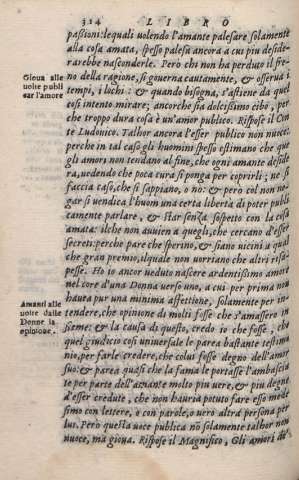 314 LIBRO
passioni: lequali uolendo l'amante palesare solamente
alla cosa amata, spesso palesa ancora a cui piu deside-
rarebbe nasconderle. Però chi non ha perduto il fre-
Gioua alle
uolte publi
car l'amore
no della ragione, si gouerna cautamente, & osserua i
tempi, i luchi: & quando bisogna, s'astiene da quel
cosi intento mirare; ancorche sia dolcissimo cibo, per-
che troppo dura cosa è un'amor publico. Rispose il Con
te Ludouico. Talhor ancora l'esser publico non nuoce:
perche in tal caso gli huomini spesso estimano che que
gli amori non tendano al fine, che ogni amante deside
ra, uedendo che poca cura si ponga per coprirli; ne si
faccia caso, che si sappiano, o no: & però col non ne-
gar si uendica l'huom una certa libertà di poter publi
camente parlare, & star senza sospetto con la cosa
amata: ilche non auuien a quegli, che cercano d'esser
secreti: perche pare che sperino, & siano uicini a qual
che gran premio, ilquale non uorriano che altri risa-
pesse. Ho io ancor ueduto nascere ardentissimo amore
nel core d'una Donna uerso uno, a cui per prima non
Amanti alle
uolte dalle
Donne in
opinione.
hauea pur una minima affettione, solamente per in-
tendere, che opinione di molti fosse che s'amassero in
sieme: & la causa di questo, credo io che fosse, che
quel giudicio cosi uniuersale le parea bastante testimo
nio, per farle credere, che colui fosse degno dell'amor
suo: & parea quasi che la fama le portasse l'ambascia
te per parte dell'amante molto piu uere, & piu degne
d'esser credute, che non hauria potuto far esso mede
simo con lettere, o con parole, o uero altra persona per
lui. Però questa uoce publica nō solamente talhor non
nuoce, ma gioua. Rispose il Magnifico, Gli amori de'